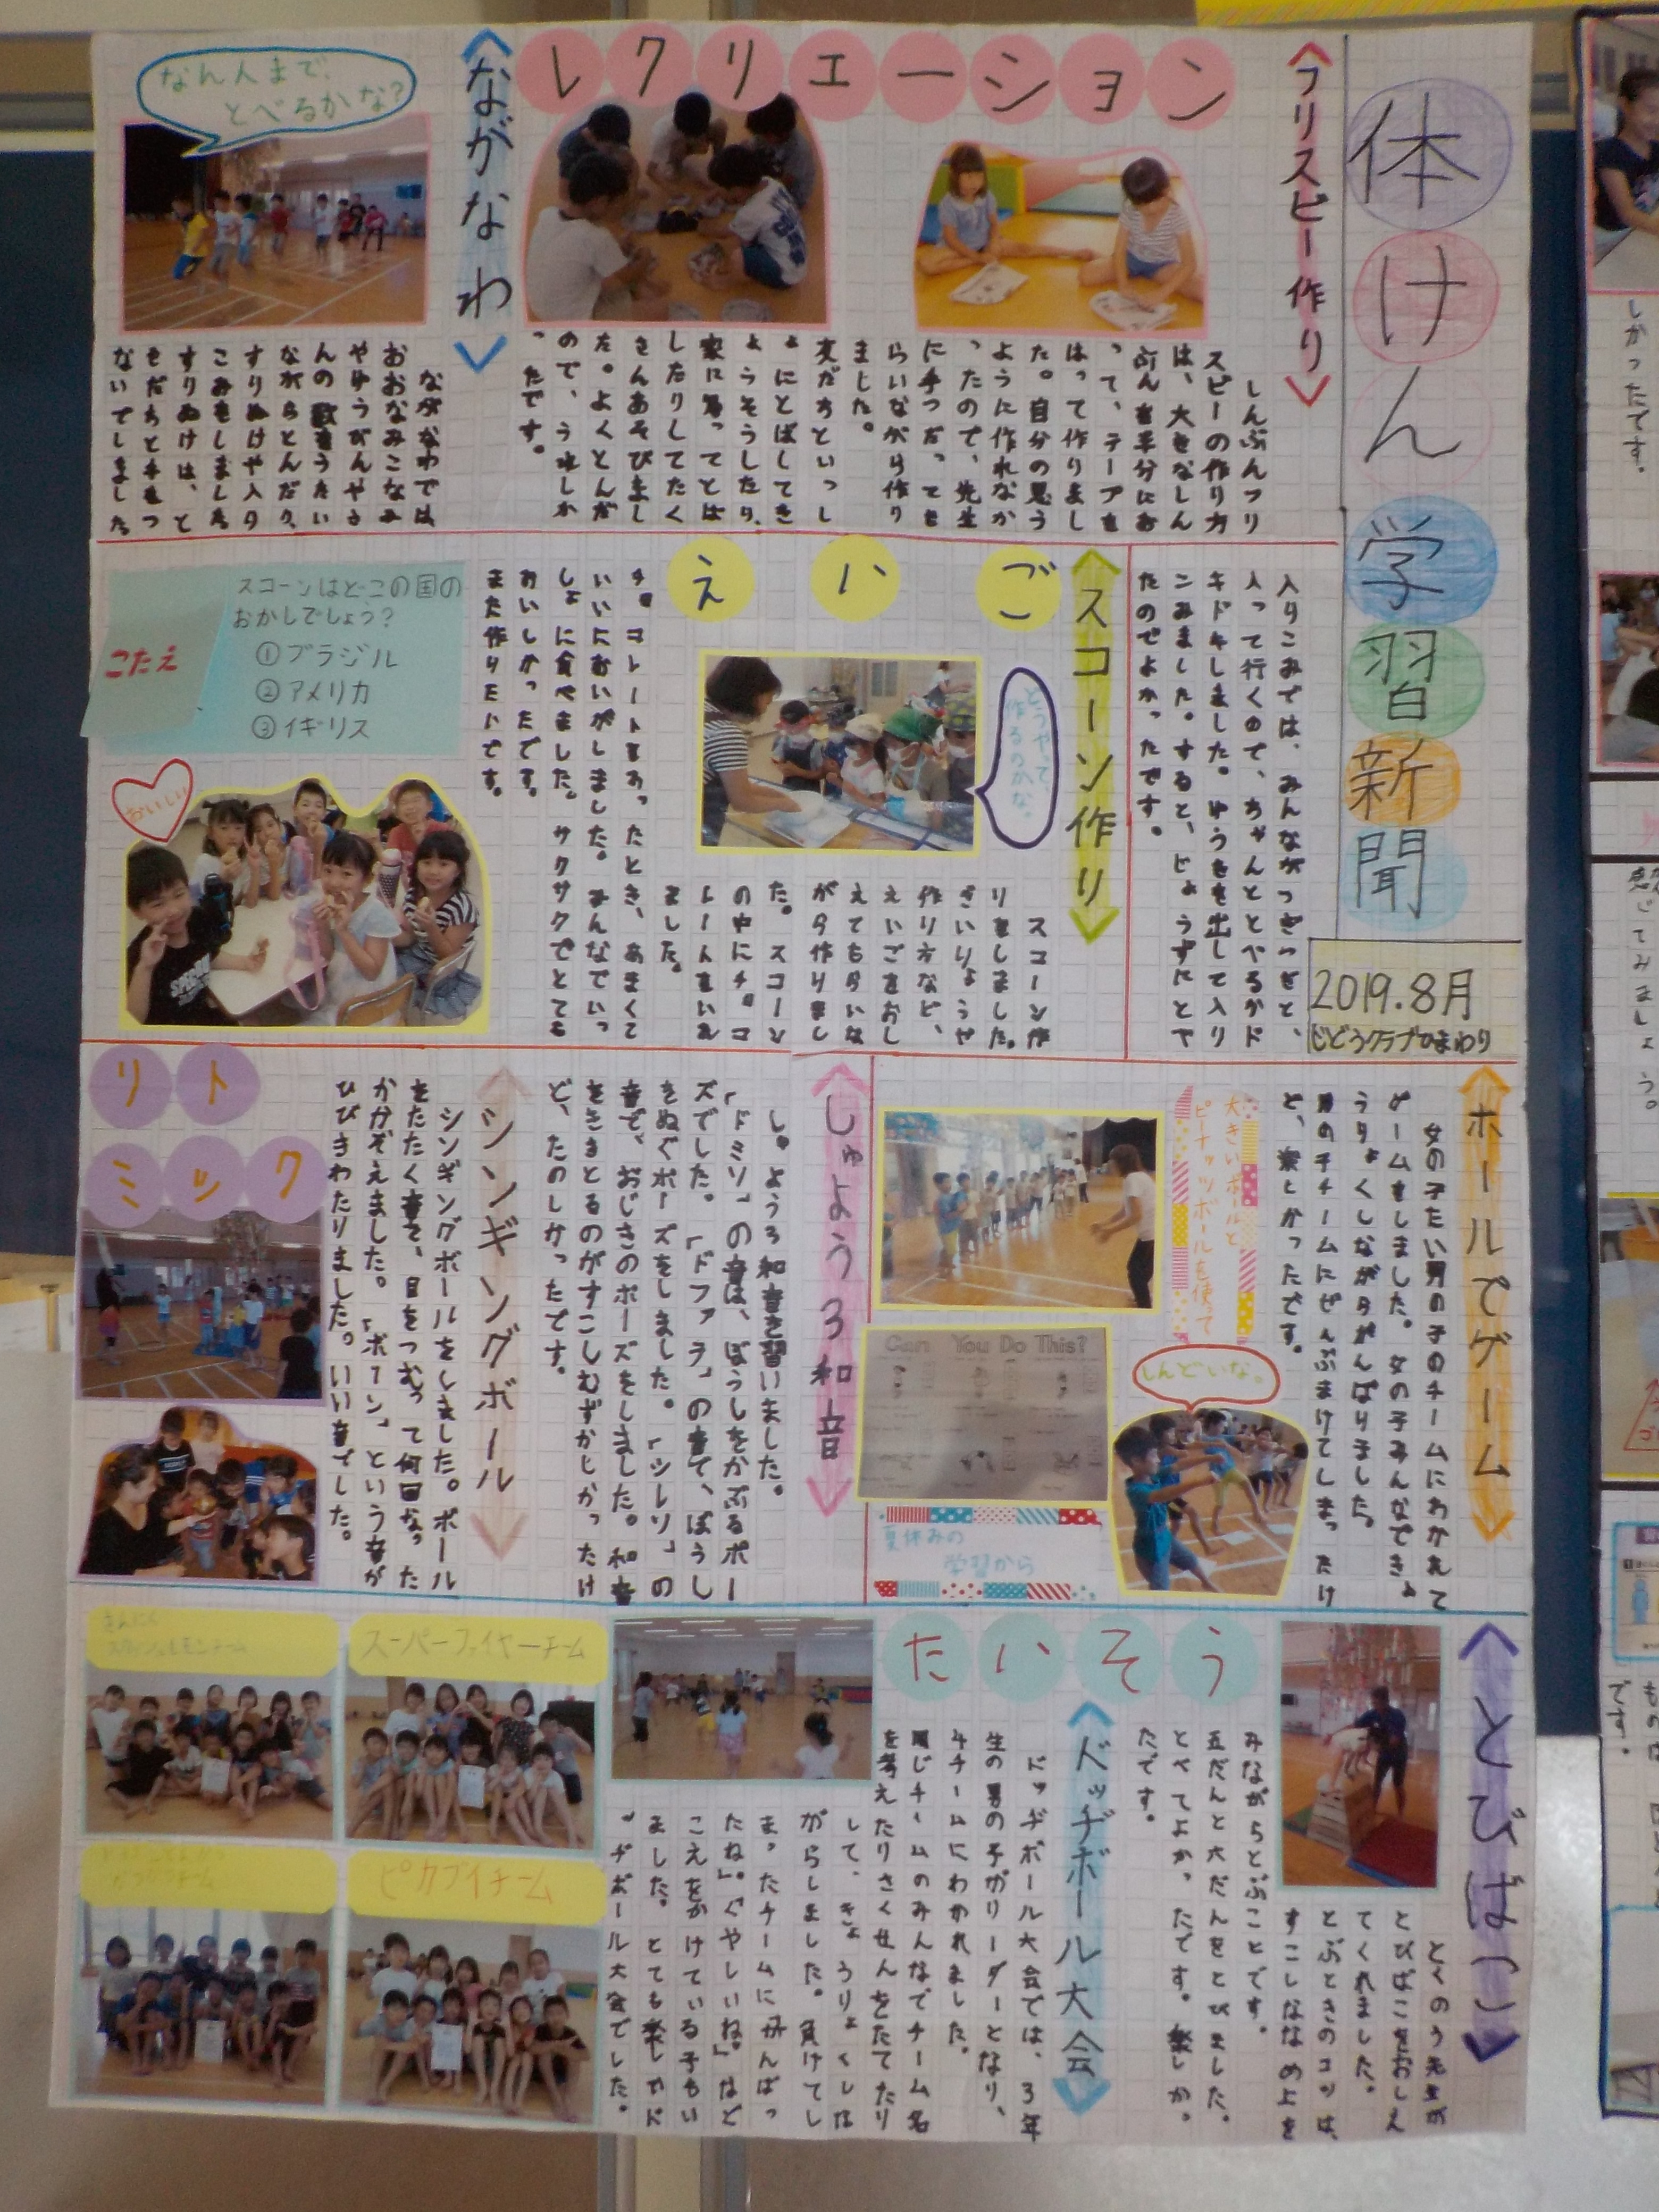 体けん学習新聞
2019.8月
じどうクラブひまわり
レクリエーション
フリスビー作り
しんぶんフリ
スビーの作り方
は、大きなしん
ぶんを半分にお
って、テープを
はって作りまし
た。自分の思う
ように作れなか
ったので、先生
に手つだっても
らいながら作り
ました。
友だちといっし
ょにとばしてき
ょうそうしたり、
家に帰ってとば
したりしてたく
さんあそびまし
た。よくとんだ
ので、うれしか
ったです。
ながなわ
なん人まで、
とべるかな?
ながなわでは、
おおなみこなみ
やゆうびんやさ
んの歌をうたい
ながらとんだり、
すりぬけや入り
こみをしました
すりぬけは、と
もだちと手をつ
ないでしました
入りこみでは、みんながつぎつぎと、
入って行くので、ちゃんととべるかド
キドキしました。ゆうきを出して入り
こみました。すると、じょうずにとべ
たのでよかったです。
えいご
スコーン作り
どうやって、
作るのかな。
スコーン作
りをしました。
ざいりょうや
作り方など、
えいごをおし
えてもらいな
がら作りまし
た。スコーン
の中にチョコ
レートをいれ
ました。
チョコレートをわったとき、あまくて
いいにおいがしました。みんなでいっ
しょに食べました。サクサクでとても
おいしかったです。
また作りたいです。
スコーンはどこの国の
おかしでしょう?
①ブラジル
②アメリカ
③イギリス
こたえ
おいしい
ホールでゲーム
女の子たい男の子のチームにわかれて
ゲームをしました。女の子みんなでき
ょうりょくしながらがんばりました。
男の子チームにぜんぶまけてしまったけ
ど、楽しかったです。
大きいボールと
ピーナッツボールを使って
Can You Do This?
しんどいな。
夏休みの
学習から
リトミック
しゅよう3和音
しゅよう3和音を習いました。
「ドミソ」の音は、ぼうしをかぶるポー
ズでした。「ドファラ」の音で、ぼうし
をぬぐポーズをしました。「シレソ」の
音で、おじきのポーズをしました。和音
をききとるのがすこしむずかしかったけ
ど、たのしかったです。
シンギングボール
シンギングボールをしました。ボール
をたたく音を、目をつむって何回なった
かかぞえました。「ボーン」という音が
ひびきわたりました。いい音でした。
たいそう
とびばこ
とくのう先生が
とびばこをおしえ
てくれました。
とぶときのコツは、
すこしななめ上を
みながらとぶことです。
五だんと六だんをとびました。
とべてよかったです。楽しかっ
たです。
ドッヂボール大会
ドッヂボール大会では、3年
生の男の子がリーダーとなり、
4チームにわかれました。
同じチームのみんなでチーム名
を考えたりさくせんをたてたり
して、きょうりょくしな
がらしました。負けてし
まったチームに「がんばっ
たね」。「くやしいね。」など
こえをかけている子もい
ました。とても楽しいド
ッヂボール大会でした。
スーパーファイヤーチーム
ピカブイチーム